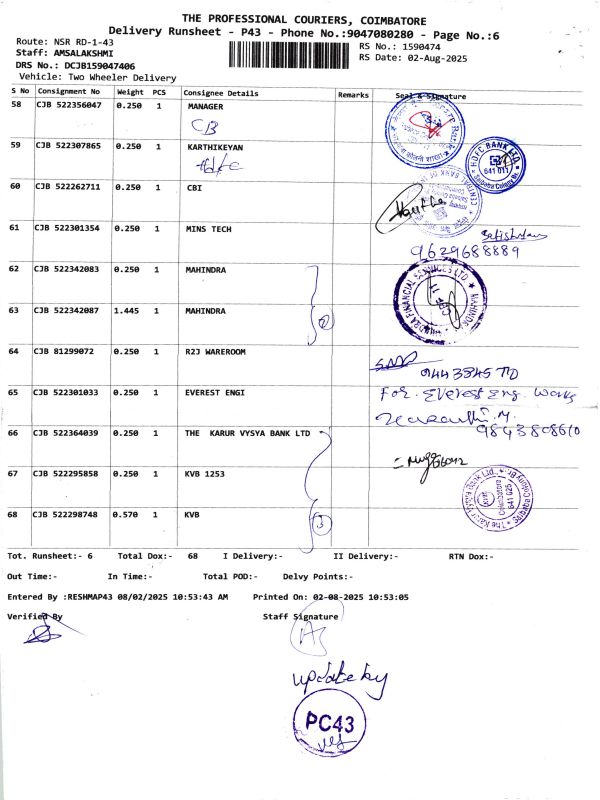 THE PROFESSIONAL COURIERS, COIMBATORE
Delivery Runsheet - P43 - Phone No.:9047080280 - Page No.:6
Route: NSR RD-1-43
RS No.: 1590474
Staff: AMSALAKSHMI
RS Date: 02-Aug-2025
DRS No.: DCJB159047406
Vehicle: Two Wheeler Delivery
S No Consignment No Weight PCS Consignee Details Remarks Seal & Signature
58 CJB 522356047 0.250 1 MANAGER
CB
59 CJB 522307865 0.250 1 KARTHIKEYAN
Hdfc
HDFC BANK LTD.
641 011
60 CJB 522262711 0.250 1 CBI
CENTRAL BANK OF
61 CJB 522301354 0.250 1 MINS TECH
9629688889
62 CJB 522342083 0.250 1 MAHINDRA
MAHINDRA FINANCIAL SERVICES LTD
63 CJB 522342087 1.445 1 MAHINDRA
2
64 CJB 81299072 0.250 1 R2J WAREROOM
65 CJB 522301033 0.250 1 EVEREST ENGI
For. Everest Eng. Works
9843808610
66 CJB 522364039 0.250 1 THE KARUR VYSYA BANK LTD
67 CJB 522295858 0.250 1 KVB 1253
The Karur Vysya Bank Ltd.,
Coimbatore
641 025
68 CJB 522298748 0.570 1 KVB
3
Tot. Runsheet:- 6 Total Dox:- 68 I Delivery:- II Delivery:- RTN Dox:-
Out Time:- In Time:- Total POD:- Delvy Points:-
Entered By :RESHMAP43 08/02/2025 10:53:43 AM Printed On: 02-08-2025 10:53:05
Verified By Staff Signature
update by
PC43